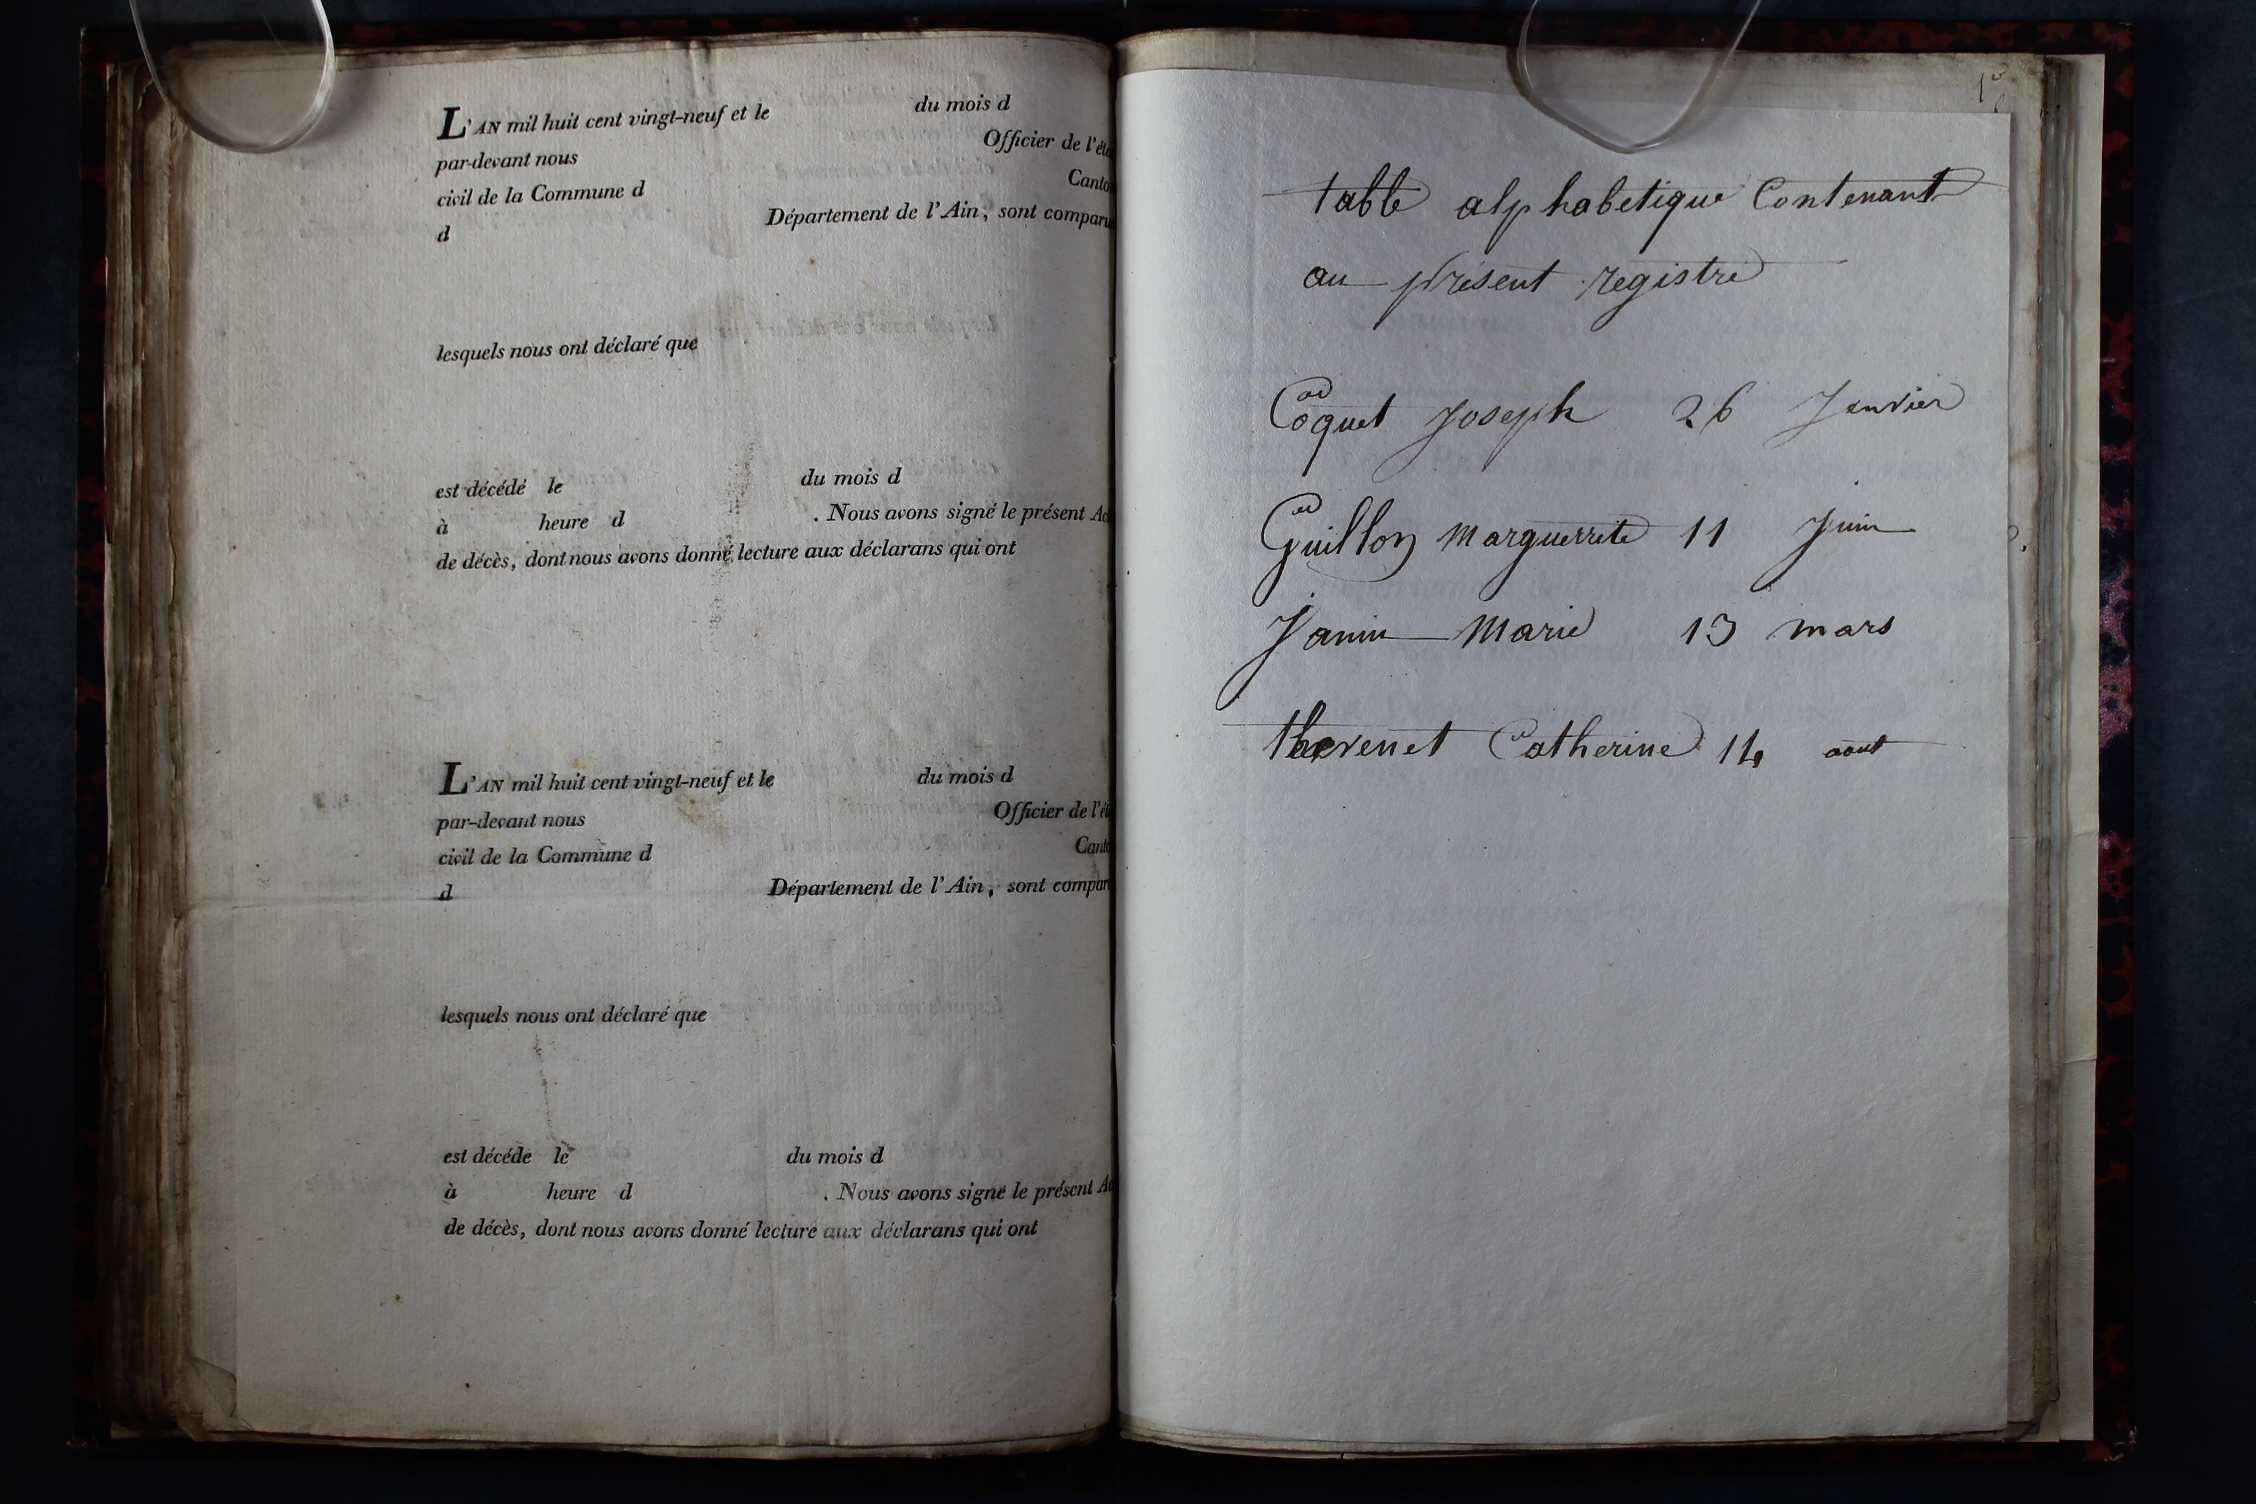 L'AN mil huit cent vingt-neuf et le du mois d
par-devant nous Officier de l'éta
civil de la Commune d Canto
d Département de l'Ain, sont comparu
lesquels nous ont déclaré que
est décédé le du mois d
à heure d . Nous avons signé le présent Ac
de décès, dont nous avons donné lecture aux déclarans qui ont
L'AN mil huit cent vingt-neuf et le du mois d
par-devant nous Officier de l'ét
civil de la Commune d Canto
d Département de l'Ain, sont compar
lesquels nous ont déclaré que
est décéde le du mois d
à heure d . Nous avons signé le présent Ac
de décès, dont nous avons donné lecture aux déclarans qui ont
table alphabetique Contenant
au présent registre
Coquet Joseph 26 Janvier
Guillon Marguerrite 11 Juin
Janin Marie 13 mars
thevenet Catherine 14 aout